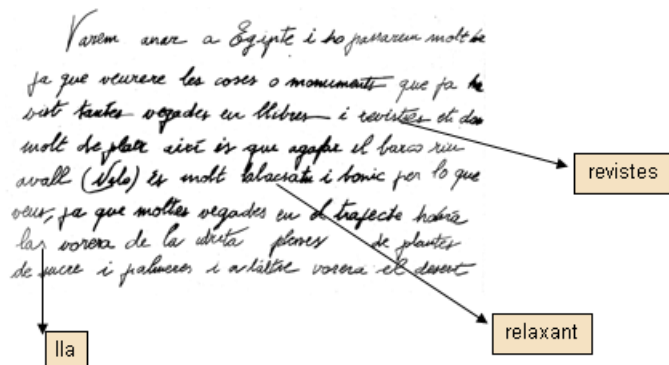 Varem anar a Egipte i ho passarem molt be
ja que veurere les coses o monuments que ja he
vist tantes vegades en llibres i revisties et don
molt de plaer aixi és que agafar el barco riu
avall (Nilo) és molt i bonic per lo que
veus, ja que moltes vegades en el trajecte habia
las vorera de la plenes de plantes
de sucre i palmeres i a l'altre vorera el desert
revistes
relaxant
lla